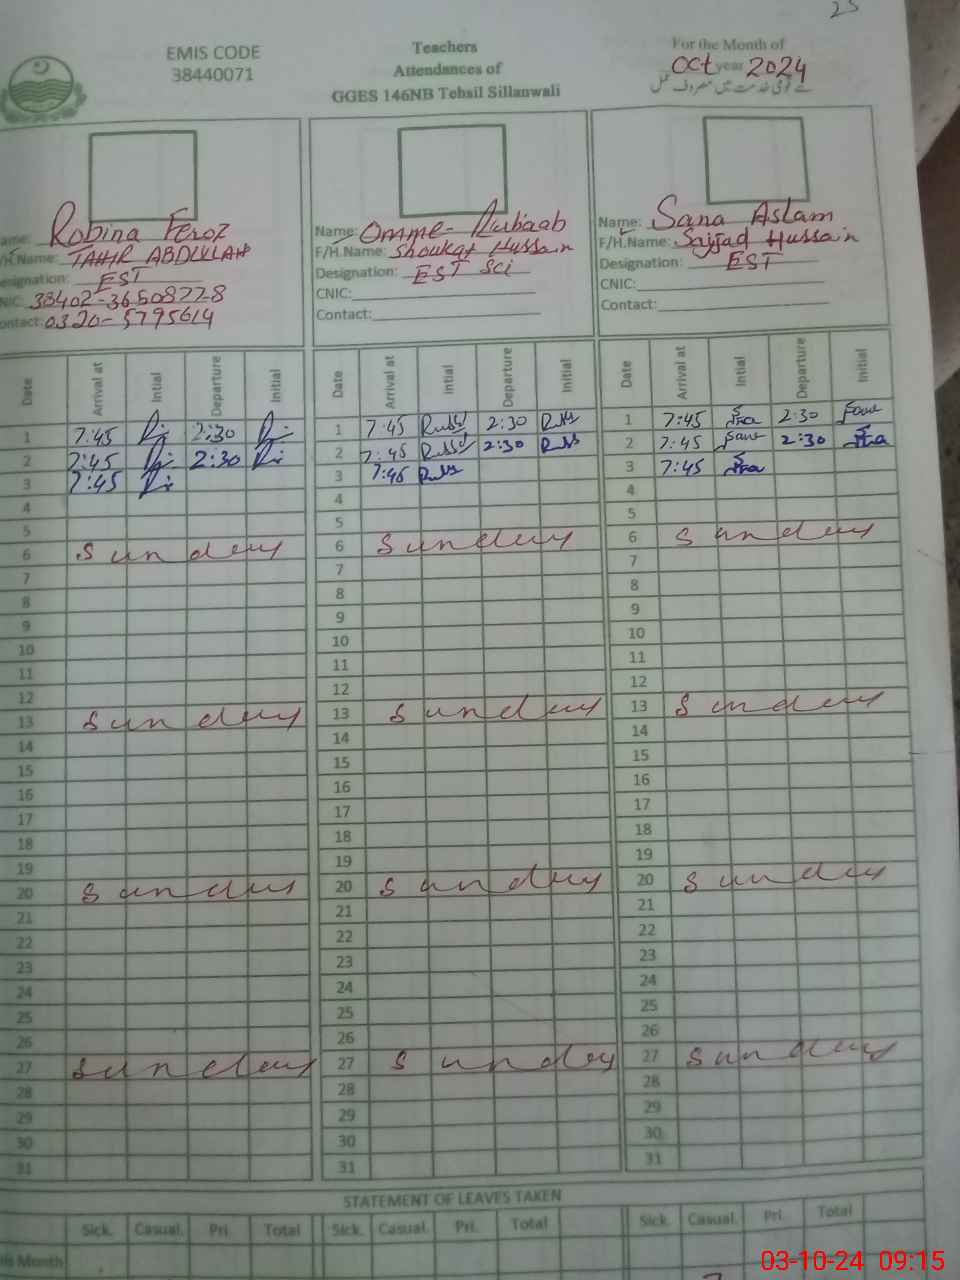 25
EMIS CODE
38440071
Teachers
Attendances of
GGES 146NB Tehsil Sillanwali
For the Month of
Oct year 2024
Name: Robina Feroz
F/H.Name: TAHIR ABDULLAH
Designation: EST
CNIC: 38402-3650877-8
Contact: 0320-5795614
Name: Omme-Rubaab
F/H.Name: Shoukat Hussain
Designation: EST Sci
CNIC:
Contact:
Name: Sana Aslam
F/H.Name: Sajjad Hussain
Designation: EST
CNIC:
Contact:
Date Arrival at Intial Departure Initial Date Arrival at Intial Departure Initial Date Arrival at Intial Departure Initial
1 7:45 2:30 1 7:45 2:30 1 7:45 2:30
2 7:45 2:30 2 7:45 2:30 2 7:45 2:30
3 7:45 3 7:45 3 7:45
4 4 4
5 5 5
6 Sunday 6 Sunday 6 Sunday
7 7 7
8 8 8
9 9 9
10 10 10
11 11 11
12 12 12
13 Sunday 13 Sunday 13 Sunday
14 14 14
15 15 15
16 16 16
17 17 17
18 18 18
19 19 19
20 Sunday 20 Sunday 20 Sunday
21 21 21
22 22 22
23 23 23
24 24 24
25 25 25
26 26 26
27 Sunday 27 Sunday 27 Sunday
28 28 28
29 29 29
30 30 30
31 31 31
STATEMENT OF LEAVES TAKEN
Sick. Casual. Pri. Total Sick. Casual. Pri. Total Sick. Casual. Pri. Total
Month
03-10-24 09:15